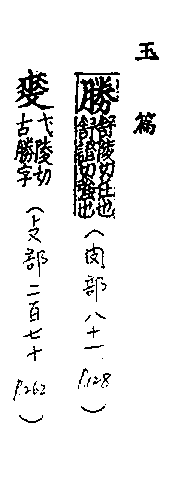 玉篇
勝 舒陵切任也
舒證切也
(肉部八十一 P.128)
弋陵切
古勝字
(攴部二百七十 P.262)